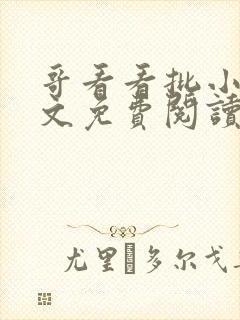 哥看看批小
文免費閱讀
尤里�多尔戈